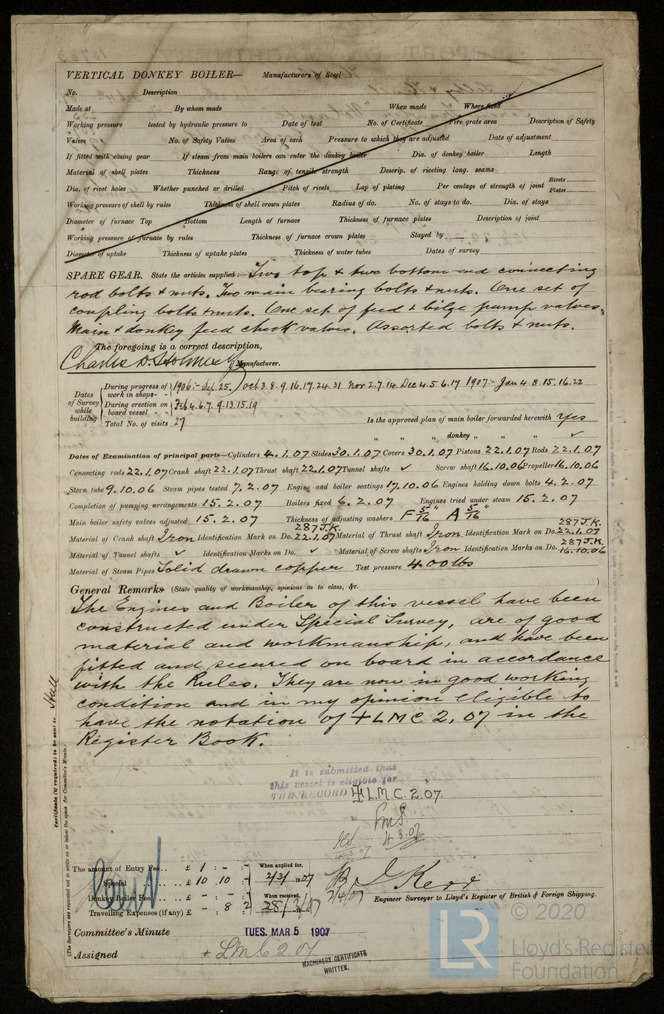 VERTICAL DONKEY BOILER— Manufacturers of Steel
No. Description
Made at By whom made When made Where fixed
Working pressure tested by hydraulic pressure to Date of test No. of Certificate Fire grate area Description of Safety
Valves No. of Safety Valves Area of each Pressure to which they are adjusted Date of adjustment
If fitted with easing gear If steam from main boilers can enter the donkey boiler Dia. of donkey boiler Length
Material of shell plates Thickness Range of tensile strength Descrip. of riveting long. seams
Dia. of rivet holes Whether punched or drilled Pitch of rivets Lap of plating Per centage of strength of joint Rivets Plates
Working pressure of shell by rules Thickness of shell crown plates Radius of do. No. of stays to do. Dia. of stays
Diameter of furnace Top Bottom Length of furnace Thickness of furnace plates Description of joint
Working pressure of furnace by rules Thickness of furnace crown plates Stayed by
Diameter of uptake Thickness of uptake plates Thickness of water tubes Dates of survey
SPARE GEAR. State the articles supplied:— Two top & two bottom end connecting
rod bolts & nuts. Two main bearing bolts & nuts. One set of
coupling bolts & nuts. One set of feed & bilge pump valves.
Main & donkey feed check valves. Assorted bolts & nuts.
The foregoing is a correct description,
Charles D. Holmes & Co Manufacturer.
Dates of Survey while building
During progress of work in shops - - 1906:- Sep 25, Oct 3.8.9.16.17.24.31 Nov 2.7.14 Dec 4.5.6.17 1907:- Jan 4.8.15.16.22
During erection on board vessel - - Feb 4.6.7.9.13.15.19
Total No. of visits 27
Is the approved plan of main boiler forwarded herewith Yes
" " " donkey " " ✓
Dates of Examination of principal parts—Cylinders 4.1.07 Slides 30.1.07 Covers 30.1.07 Pistons 22.1.07 Rods 22.1.07
Connecting rods 22.1.07 Crank shaft 22.1.07 Thrust shaft 22.1.07 Tunnel shafts ✓ Screw shaft 16.10.06 Propeller 16.10.06
Stern tube 9.10.06 Steam pipes tested 7.2.07 Engine and boiler seatings 17.10.06 Engines holding down bolts 4.2.07
Completion of pumping arrangements 15.2.07 Boilers fixed 6.2.07 Engines tried under steam 15.2.07
Main boiler safety valves adjusted 15.2.07 Thickness of adjusting washers F 5/16" A 5/16"
Material of Crank shaft Iron Identification Mark on Do. 287 J.K. 22.1.07 Material of Thrust shaft Iron Identification Mark on Do. 287 J.K. 22.1.07
Material of Tunnel shafts ✓ Identification Marks on Do. ✓ Material of Screw shafts Iron Identification Marks on Do. 287 J.K. 16.10.06
Material of Steam Pipes Solid drawn copper Test pressure 400 lbs
General Remarks (State quality of workmanship, opinions as to class, &c.
The Engines and Boiler of this vessel have been
constructed under Special Survey, are of good
material and workmanship, and have been
fitted and secured on board in accordance
with the Rules. They are now in good working
condition and in my opinion eligible to
have the notation of + LMC 2,07 in the
Register Book.
It is submitted that
this vessel is eligible for
THE RECORD + L.M.C. 2.07.
Certificate (if required) to be sent to Hull
(The Surveyors are requested not to write on or below the space for Committee's Minute.)
The amount of Entry Fee.. £ 1 : - : - When applied for,
Special .. .. £ 10 : 10 : - 2/3/1907
Donkey Boiler Fee .. .. £ When received,
Travelling Expenses (if any) £ - : 8 :
Engineer Surveyor to Lloyd's Register of British & Foreign Shipping.
Committee's Minute TUES. MAR 5 1907
Assigned + LMC 2 07
MACHINERY CERTIFICATE
WRITTEN.
LR © 2020
Lloyd's Register
Foundation